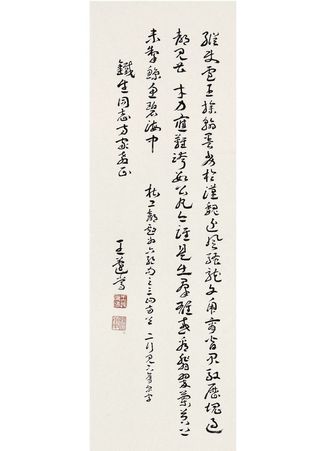 縱使盧王操翰墨劣於漢魏近風騷龍文虎脊皆君馭歷塊過
都見 才力應難跨數公凡今誰是出群雄或看翡翠蘭苕上
未掣鯨魚碧海中 杜工部戲為六絕句之三四首
鐵生同志方家教正
王蘧常